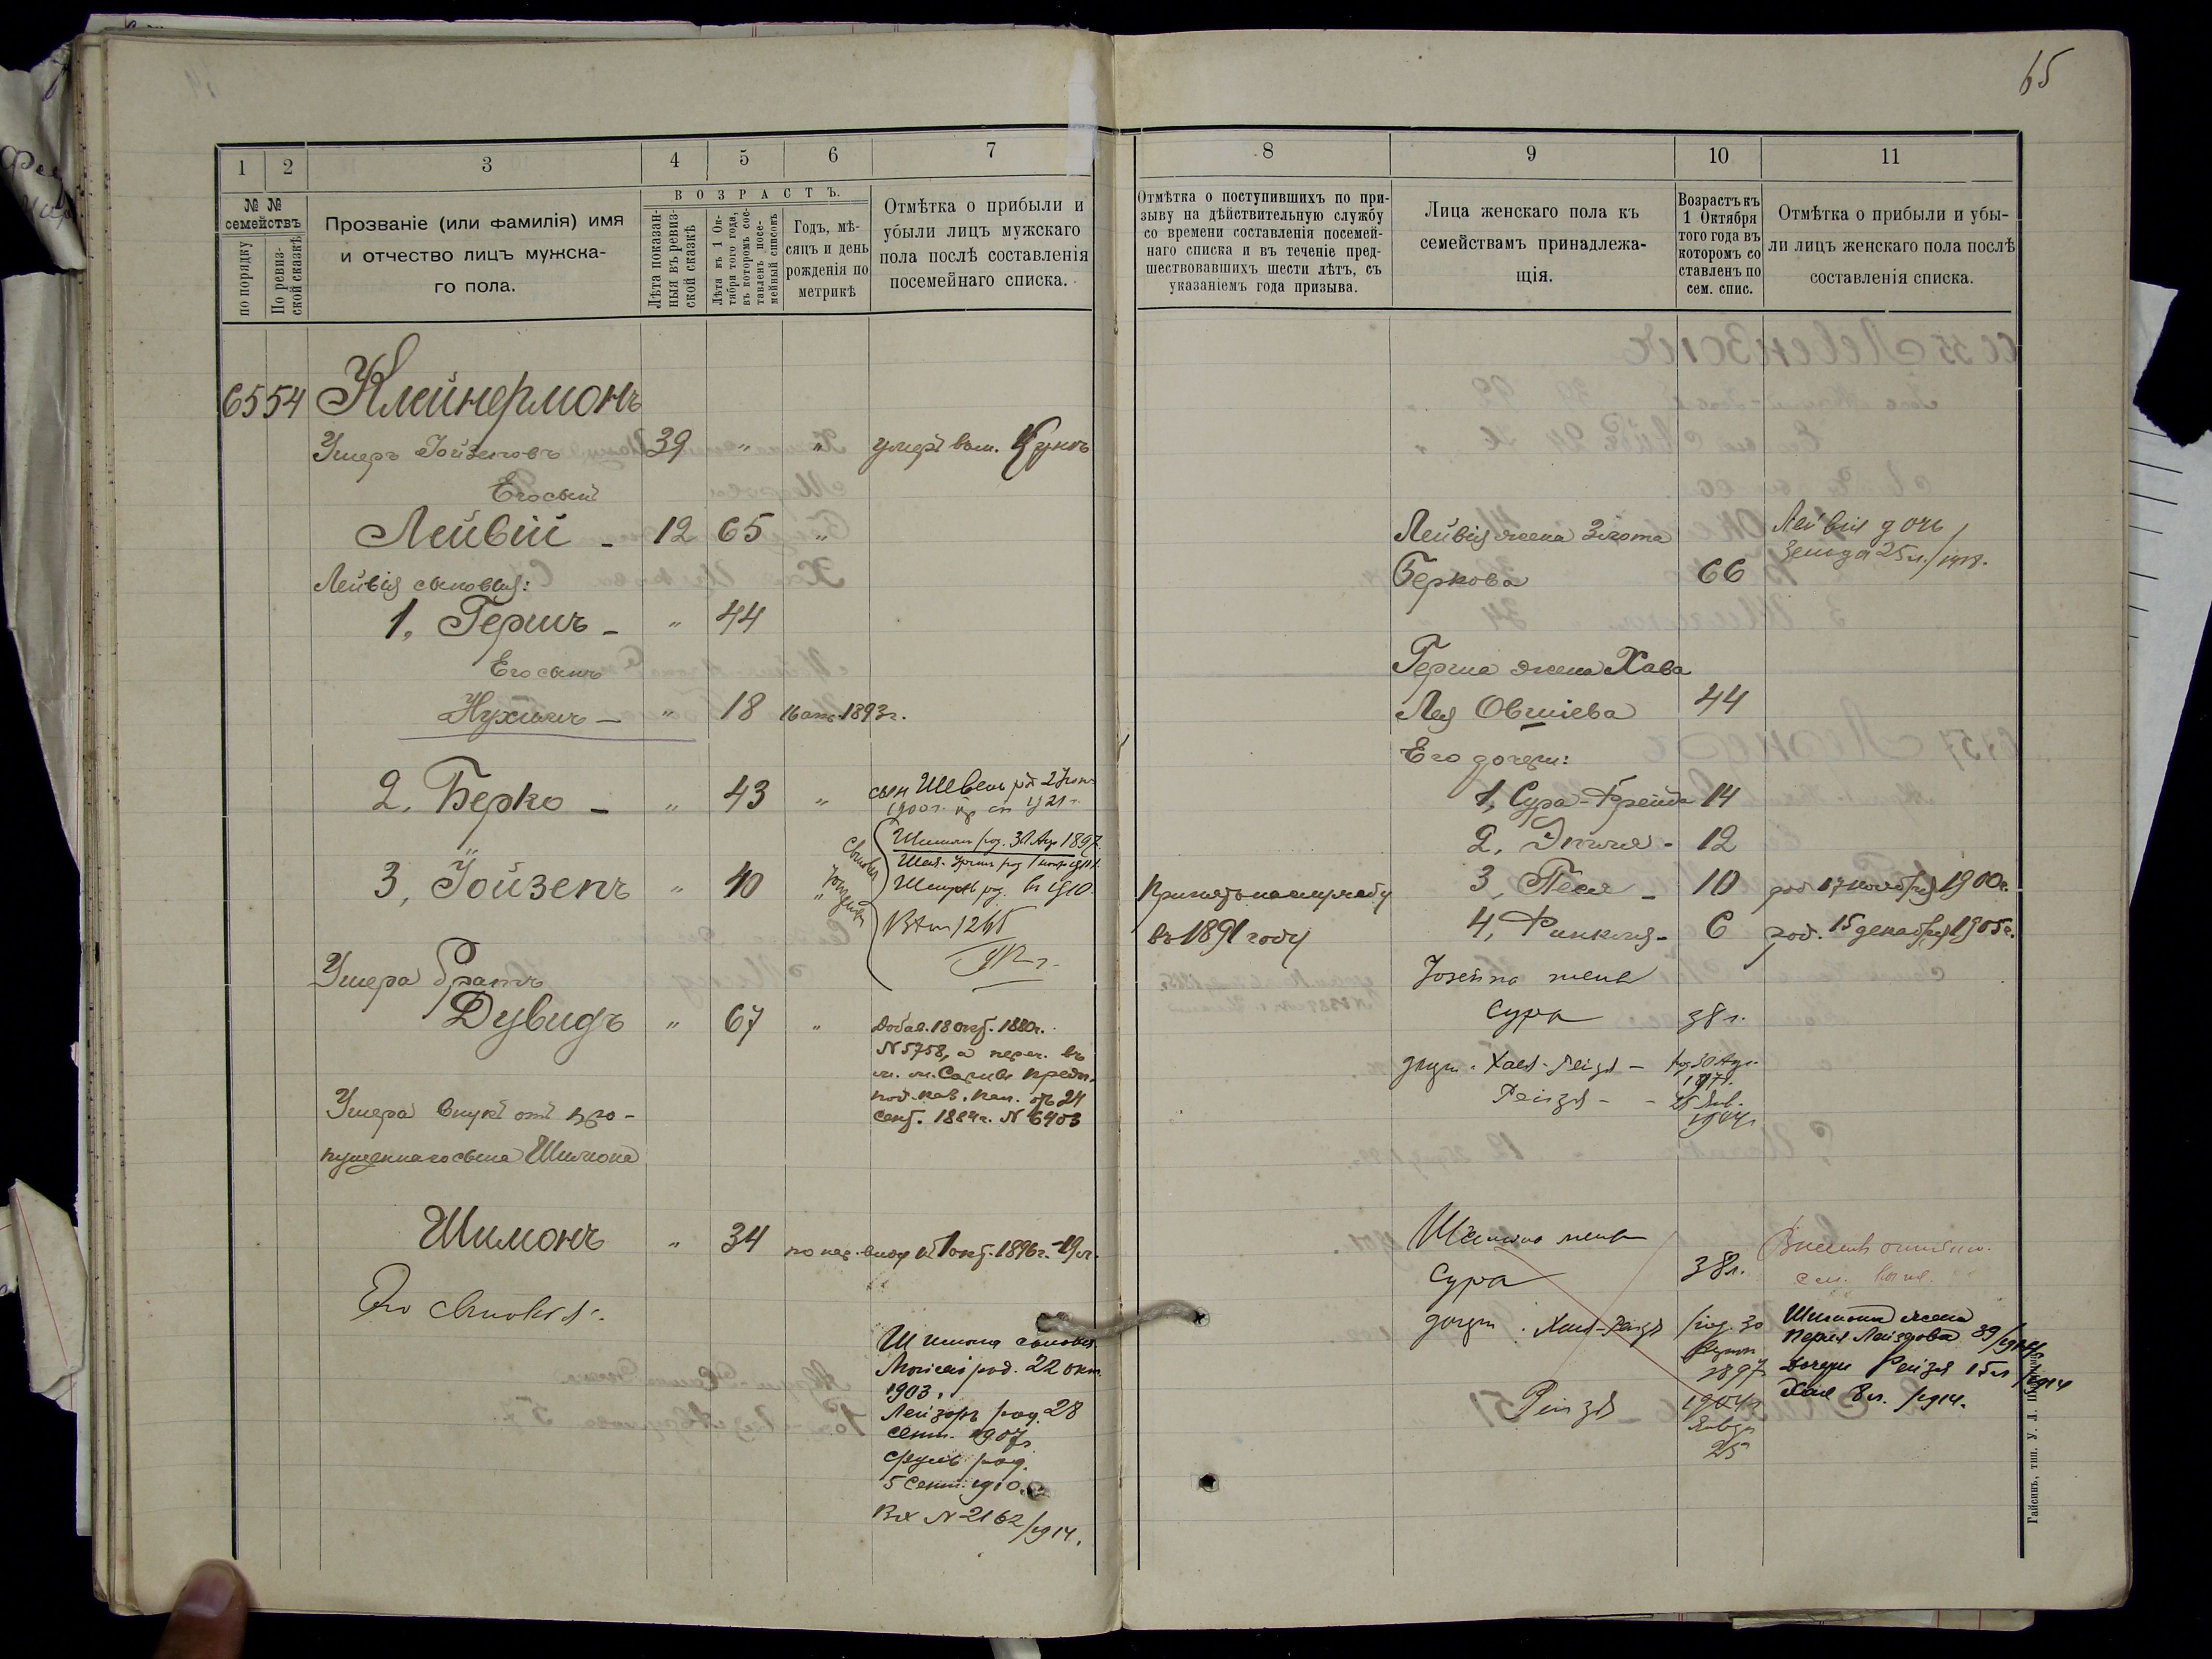 65
1
2
3
4
5
6
7
№ №
семействъ
по порядку
По ревизской сказкѣ
Прозваніе (или фамилія) имя
и отчество лицъ мужска-
го пола.
ВОЗРАСТЪ.
Лѣта показан-
ныя въ ревиз-
ской сказкѣ
Лѣта къ 1 Ок-
тября того года,
въ которомъ сос-
тавленъ посе-
мейный списокъ
Годъ, мѣ-
сяцъ и день
рожденія по
метрикѣ
Отмѣтка о прибыли и
убыли лицъ мужскаго
пола послѣ составленія
посемейнаго списка.
65 54 Клейнермонъ
Умеръ Іойзеповъ 39 " " умеръ
Его сынъ
Лейвій - 12 65 "
Лейвія сыновья:
1, Гершъ - " 44
Его сынъ
Нухимъ - " 18 16 апр. 1893 г.
2, Берко - " 43 " сын Шевель
1900 г.
3, Іойзепъ " 40 "
Сыновья
Шимон род. 30 Авг 1897
Шмуль род. в 1910
Ушера братъ
Дувидъ " 67 " Добав. 18 окт. 1880 г.
N 5758, а переч. въ
кал. пал. отъ 24
сент. 1884 г. N 6403
Ушера внукъ отъ про-
пущеннаго сына Шимона
Шимонъ " 34 по нар. виду къ 1 окт. 1896 г. - 19 л.
Его сыновья:
Шимона сыновья
Мойсей род. 22 окт.
1903,
Лейзоръ род. 28
сент. 1907 г.
Сруль род.
5 сент. 1910 г.
Вх N 2162/1914.
8
9
10
11
Отмѣтка о поступившихъ по при-
зыву на дѣйствительную службу
со времени составленія посемей-
наго списка и въ теченіе пред-
шествовавшихъ шести лѣтъ, съ
указаніемъ года призыва.
Лица женскаго пола къ
семействамъ принадлежа-
щія.
Возрастъ къ
1 Октября
того года въ
которомъ со
ставленъ по
сем. спис.
Отмѣтка о прибыли и убы-
ли лицъ женскаго пола послѣ
составленія списка.
Лейвія жена Злота
Беркова 66
Лейвія дочь
Зельда 25 л./1913.
Герша жена Хава
Лея Овшіева 44
Его дочери:
1, Сура-Фрейда 14
2, Этля - 12
3, Песя - 10 род. 17 ноября 1900 г.
4, Ринкля - 6 род. 15 декабря 1905 г.
Принятъ на службу
въ 1891 году
Іозейпа жена
Сура 38 л.
дочери: Хая-Рейзя - род. 30 Авг.
Рейзя - - 25 Янв.
1904 г.
Шимона жена
Сура 38 л.
дочери: Хая-Рейзя род. 30
Августа
1897
Рейзя 1904 г.
Января
25
Внесено ошибочно
Шимона жена
Перля Лейзерова 39/1914
дочери Рейзя 15 л /1914
Хая 8 л. /1914.
Гайсинъ, тип. У. Л.